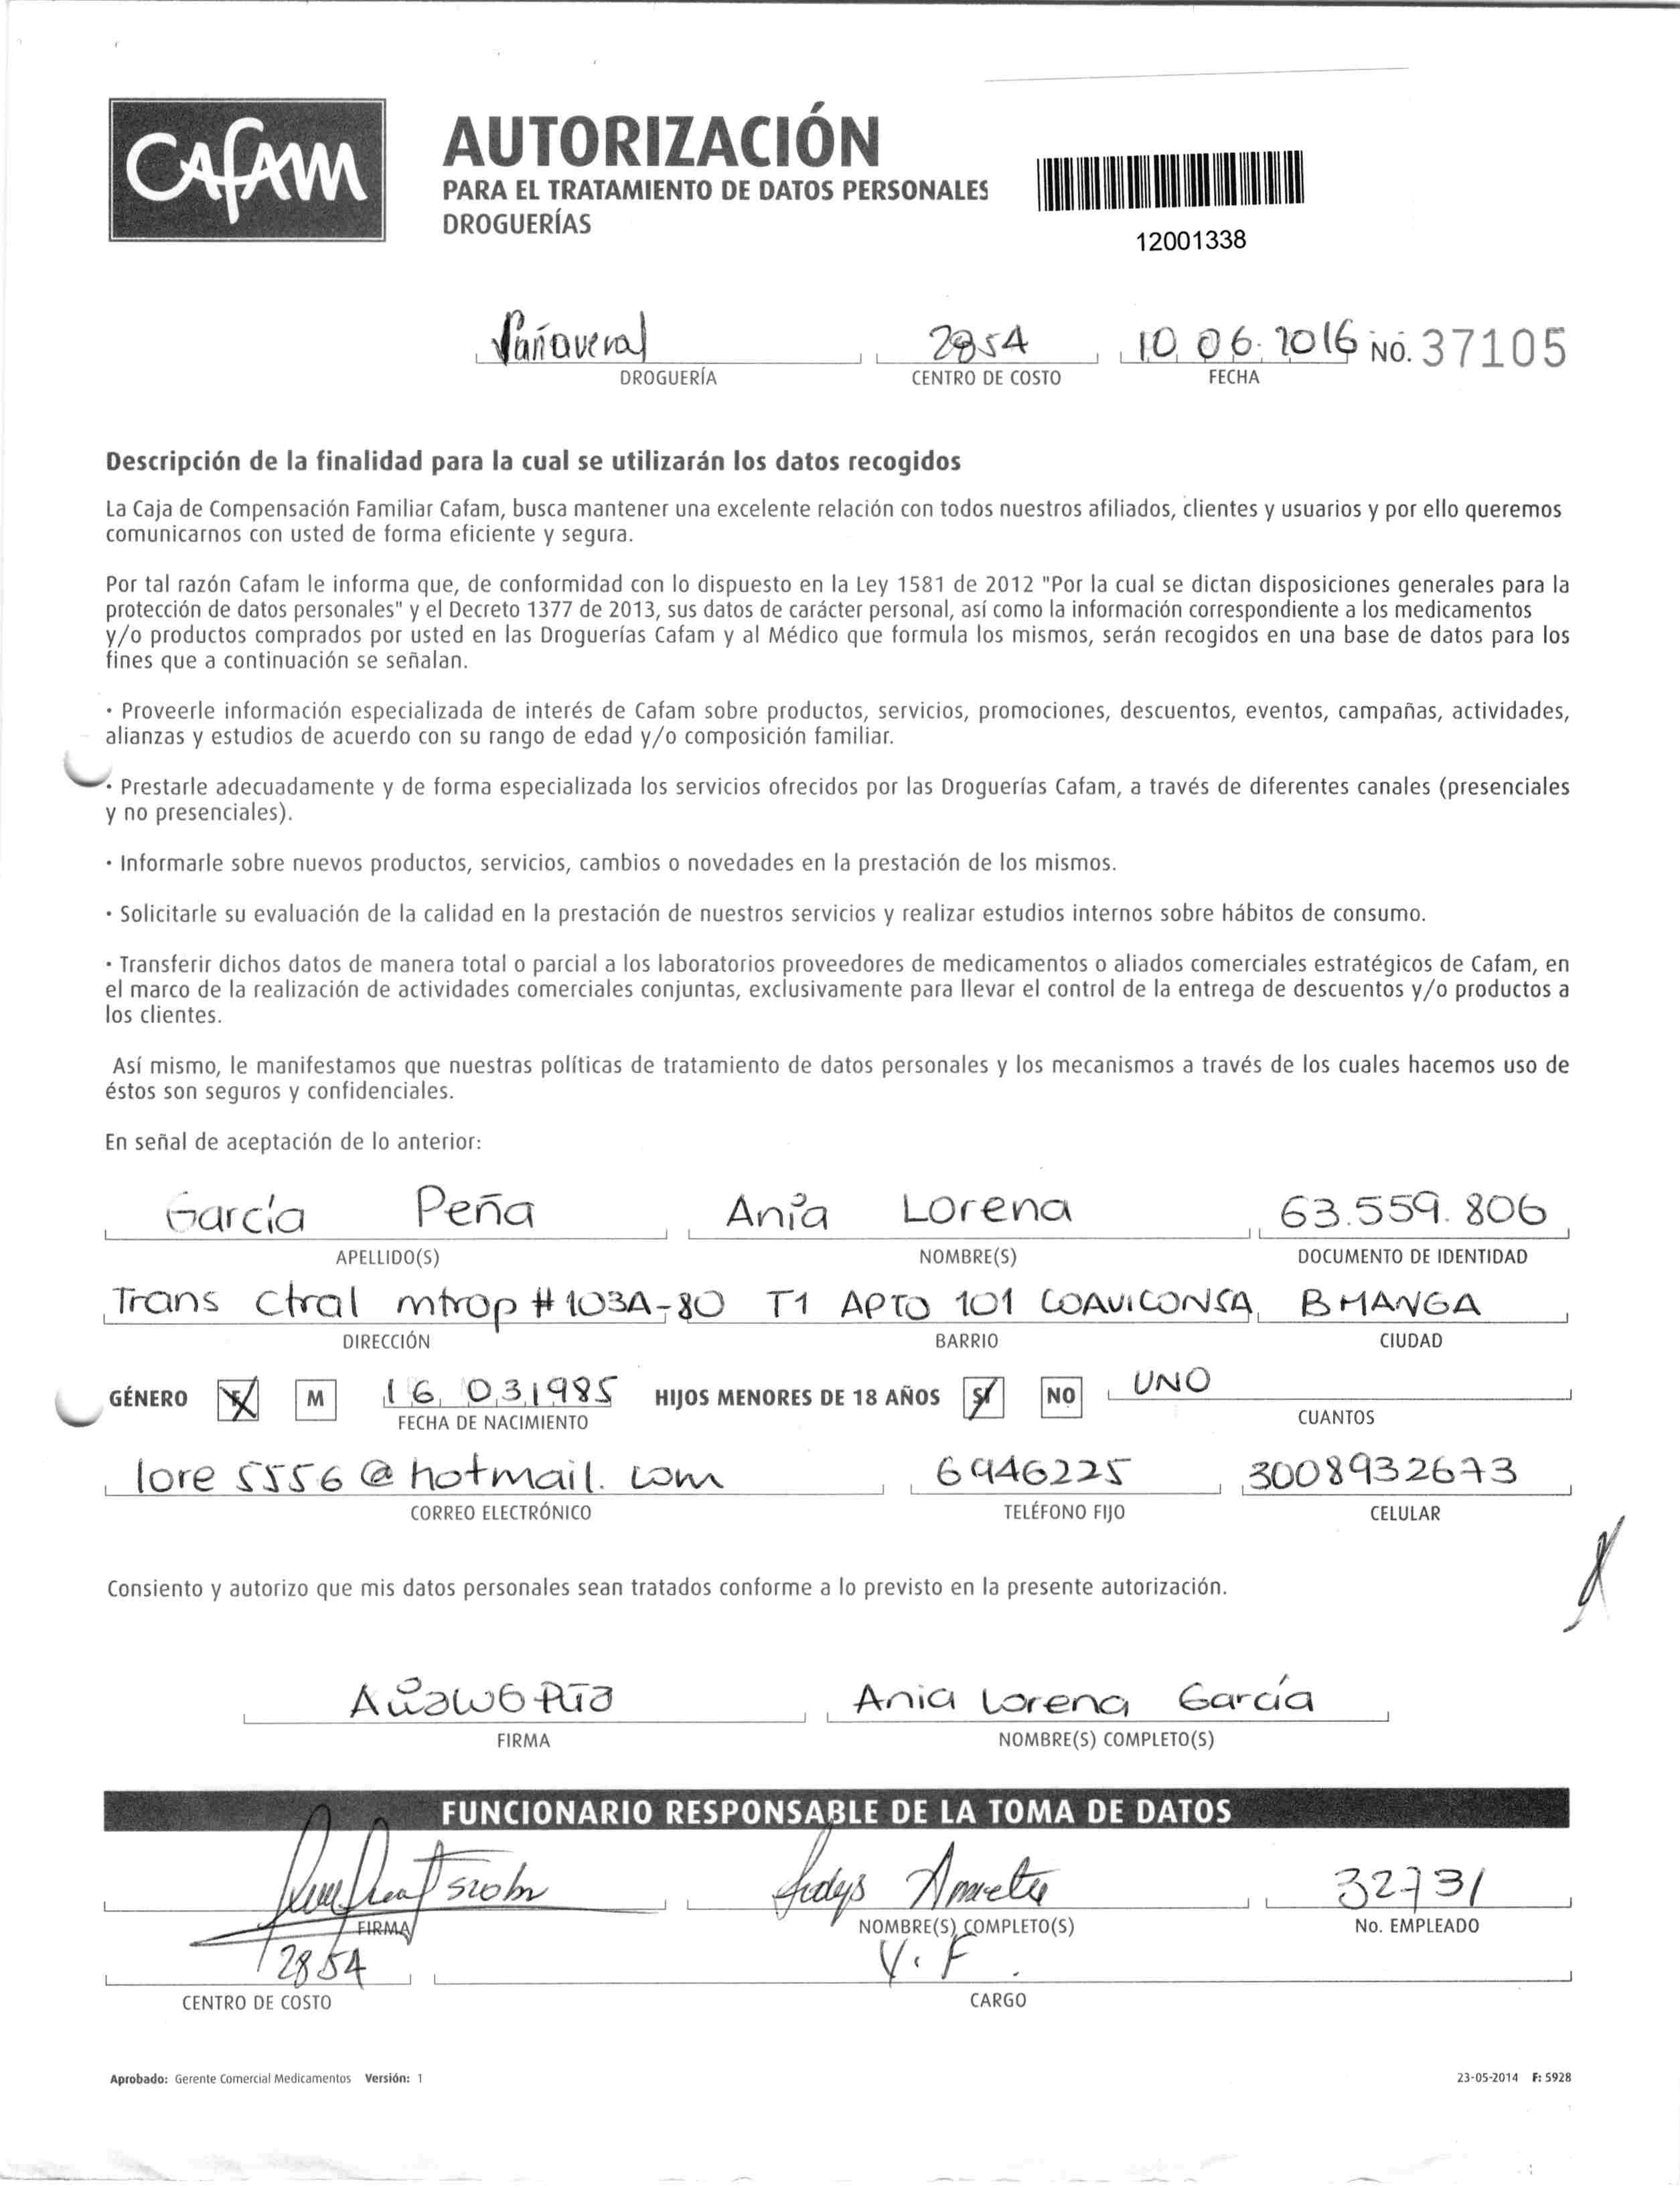 CAFAM
AUTORIZACIÓN
PARA EL TRATAMIENTO DE DATOS PERSONALES
DROGUERÍAS
12001338
Cañaveral 2854 10 06 2016 NO. 37105
DROGUERÍA CENTRO DE COSTO FECHA
Descripción de la finalidad para la cual se utilizarán los datos recogidos
La Caja de Compensación Familiar Cafam, busca mantener una excelente relación con todos nuestros afiliados, clientes y usuarios y por ello queremos
comunicarnos con usted de forma eficiente y segura.
Por tal razón Cafam le informa que, de conformidad con lo dispuesto en la Ley 1581 de 2012 "Por la cual se dictan disposiciones generales para la
protección de datos personales" y el Decreto 1377 de 2013, sus datos de carácter personal, así como la información correspondiente a los medicamentos
y/o productos comprados por usted en las Droguerías Cafam y al Médico que formula los mismos, serán recogidos en una base de datos para los
fines que a continuación se señalan.
· Proveerle información especializada de interés de Cafam sobre productos, servicios, promociones, descuentos, eventos, campañas, actividades,
alianzas y estudios de acuerdo con su rango de edad y/o composición familiar.
· Prestarle adecuadamente y de forma especializada los servicios ofrecidos por las Droguerías Cafam, a través de diferentes canales (presenciales
y no presenciales).
· Informarle sobre nuevos productos, servicios, cambios o novedades en la prestación de los mismos.
· Solicitarle su evaluación de la calidad en la prestación de nuestros servicios y realizar estudios internos sobre hábitos de consumo.
· Transferir dichos datos de manera total o parcial a los laboratorios proveedores de medicamentos o aliados comerciales estratégicos de Cafam, en
el marco de la realización de actividades comerciales conjuntas, exclusivamente para llevar el control de la entrega de descuentos y/o productos a
los clientes.
Así mismo, le manifestamos que nuestras políticas de tratamiento de datos personales y los mecanismos a través de los cuales hacemos uso de
éstos son seguros y confidenciales.
En señal de aceptación de lo anterior:
García Peña Ania Lorena 63.559.806
APELLIDO(S) NOMBRE(S) DOCUMENTO DE IDENTIDAD
Trans Ctral mtrop # 103A-80 T1 APTO 101 COAVICONSA BMANGA
DIRECCIÓN BARRIO CIUDAD
GÉNERO F M 16 03 1985 HIJOS MENORES DE 18 AÑOS SÍ NO UNO
FECHA DE NACIMIENTO CUANTOS
lore5556@hotmail.com 6946225 3008932673
CORREO ELECTRÓNICO TELÉFONO FIJO CELULAR
Consiento y autorizo que mis datos personales sean tratados conforme a lo previsto en la presente autorización.
Ania Lorena García
FIRMA NOMBRE(S) COMPLETO(S)
FUNCIONARIO RESPONSABLE DE LA TOMA DE DATOS
32731
FIRMA NOMBRE(S) COMPLETO(S) No. EMPLEADO
2854 V.F.
CENTRO DE COSTO CARGO
Aprobado: Gerente Comercial Medicamentos Versión: 1 23-05-2014 F: 5928